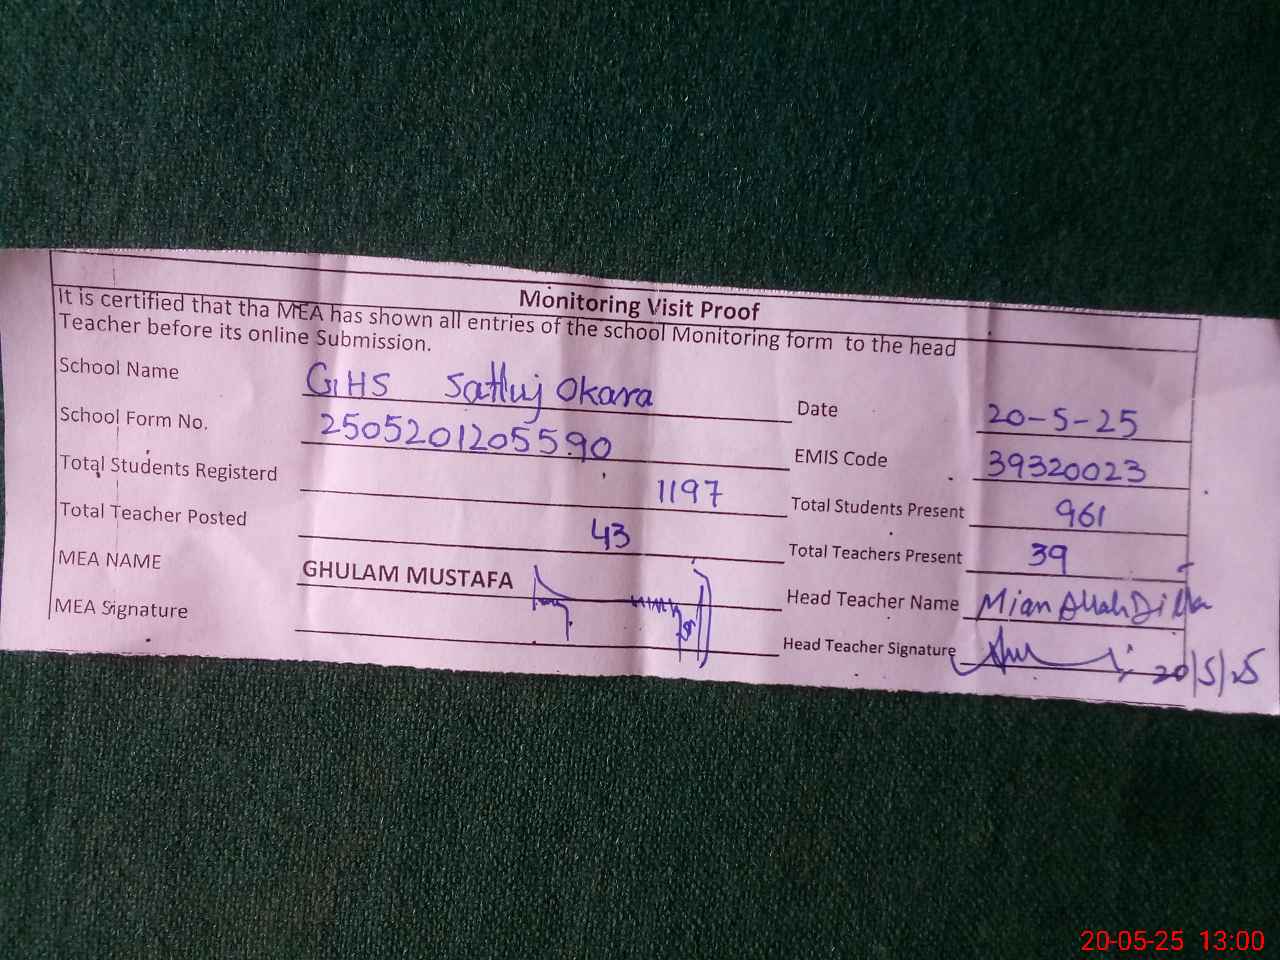 Monitoring Visit Proof
It is certified that tha MEA has shown all entries of the school Monitoring form to the head
Teacher before its online Submission.
School Name GHS Satluj Okara Date 20-5-25
School Form No. 2505201205590 EMIS Code 39320023
Total Students Registerd 1197 Total Students Present 961
Total Teacher Posted 43 Total Teachers Present 39
MEA NAME GHULAM MUSTAFA Head Teacher Name Mian Allah Ditta
MEA Signature Head Teacher Signature 20/5/25
20-05-25 13:00